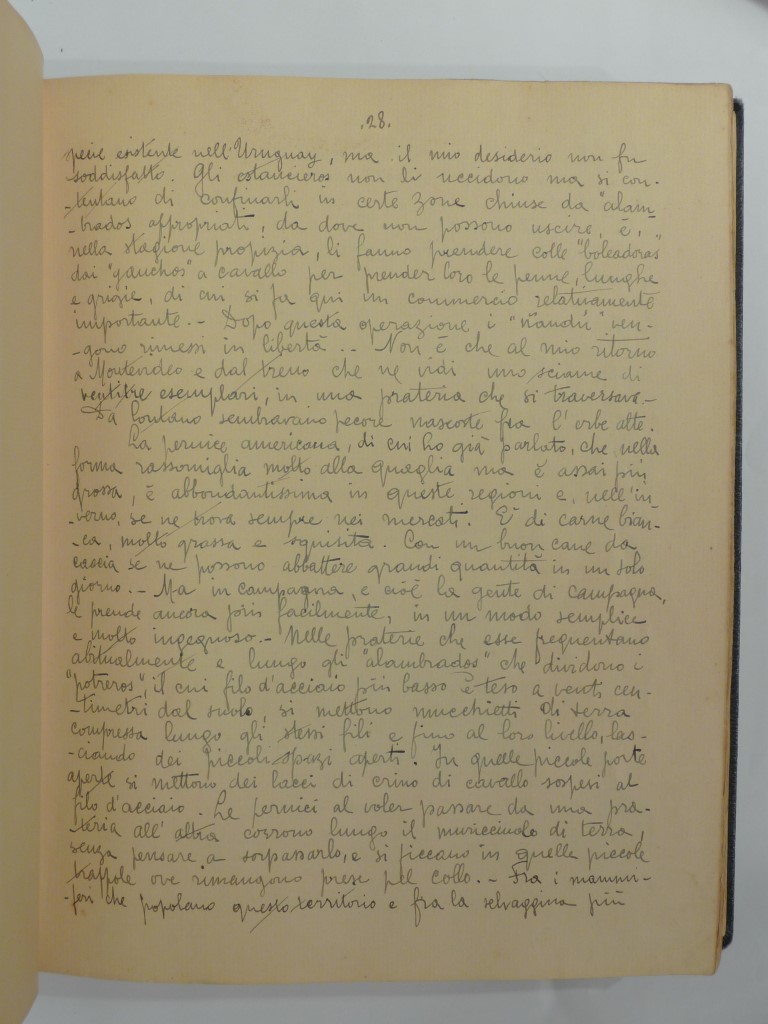 .28.
specie esistente nell'Uruguay, ma il mio desiderio non fu
soddisfatto. Gli estancieros non li uccidono ma si con-
-tentano di confinarli in certe zone chiuse da "alam-
-brados appropriati, da dove non possono uscire, e,
nella stagione propizia, li fanno prendere colle "boleadoras"
dai "gauchos" a cavallo per prender loro le penne, lunghe
e grigie, di cui si fa qui un commercio relativamente
importante.- Dopo questa operazione, i "ñandú" ven-
-gono rimessi in libertà.- Non è che al mio ritorno
a Montevideo e dal treno che ne vidi uno sciame di
ventitre esemplari, in una prateria che si traversava.-
Da lontano sembravano pecore nascoste fra l'erbe alte.
La pernice americana, di cui ho già parlato, che nella
forma rassomiglia molto alla quaglia ma è assai più
grossa, è abbondantissima in queste regioni e, nell'in-
-verno, se ne trova sempre nei mercati. È di carne bian-
-ca, molto grassa e squisita. Con un buon cane da
caccia se ne possono abbattere grandi quantità in un solo
giorno.- Ma in campagna, e cioè la gente di campagna,
le prende ancora più facilmente, in un modo semplice
e molto ingegnoso.- Nelle praterie che esse frequentano
abitualmente e lungo gli "alambrados" che dividono i
"potreros", il cui filo d'acciaio più basso è teso a venti cen-
-timetri dal suolo, si mettono mucchietti di terra
compressa lungo gli stessi fili e fino al loro livello, las-
-ciando dei piccoli spazi aperti. In quelle piccole porte
aperte si mettono dei lacci di crino di cavallo sospesi al
filo d'acciaio. Le pernici al voler passare da una pra-
-teria all'altra corrono lungo il muricciuolo di terra,
senza pensare a sorpassarlo, e si ficcano in quelle piccole
trappole ove rimangono prese pel collo.- Fra i mammi-
-feri che popolano questo territorio e fra la selvaggina più